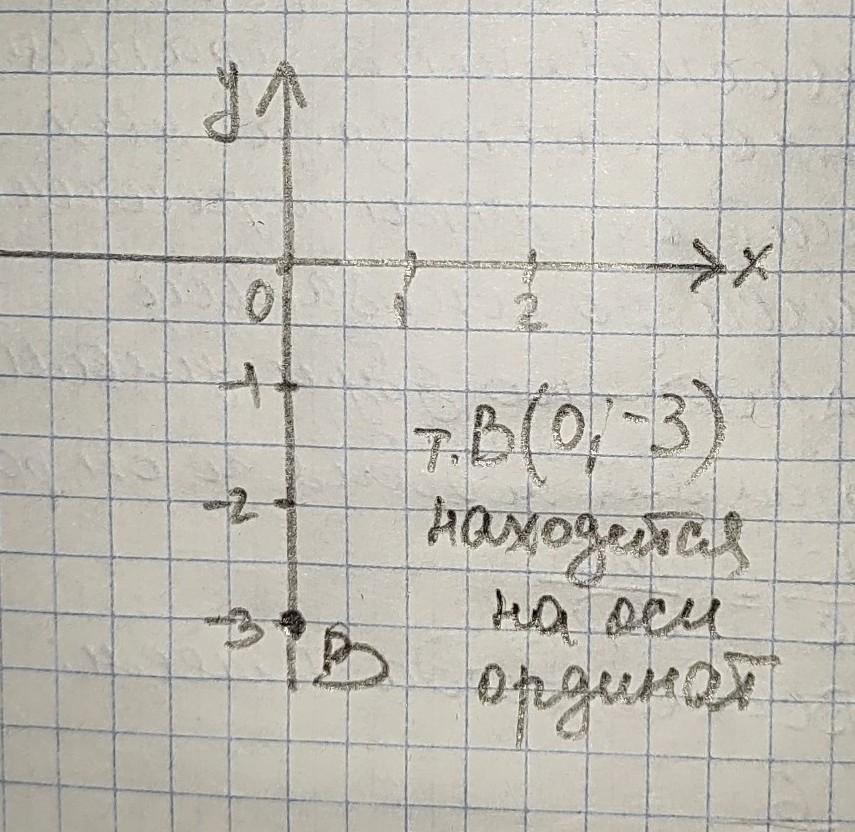 y
x
0
1
2
-1
т.В(0; -3)
-2
находится
-3
В
на оси
ординат